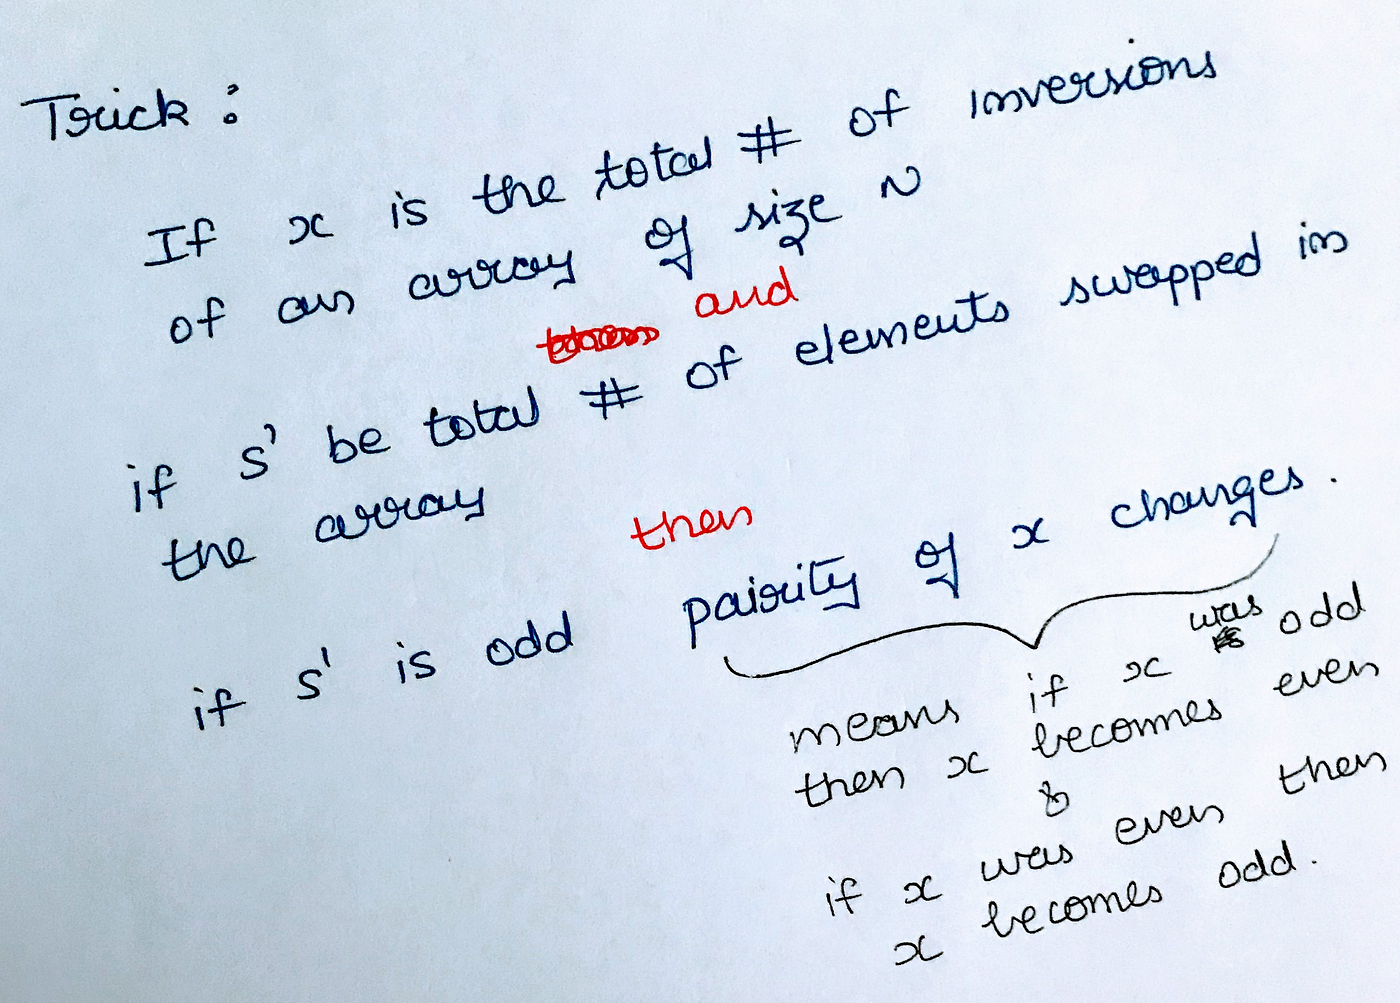 Trick :
If x is the total # of inversions
of an array of size N
and
if s' be total # of elements swapped in
the array
then
if s' is odd pairity of x changes.
means if x was odd
then x becomes even
&
if x was even then
x becomes odd.